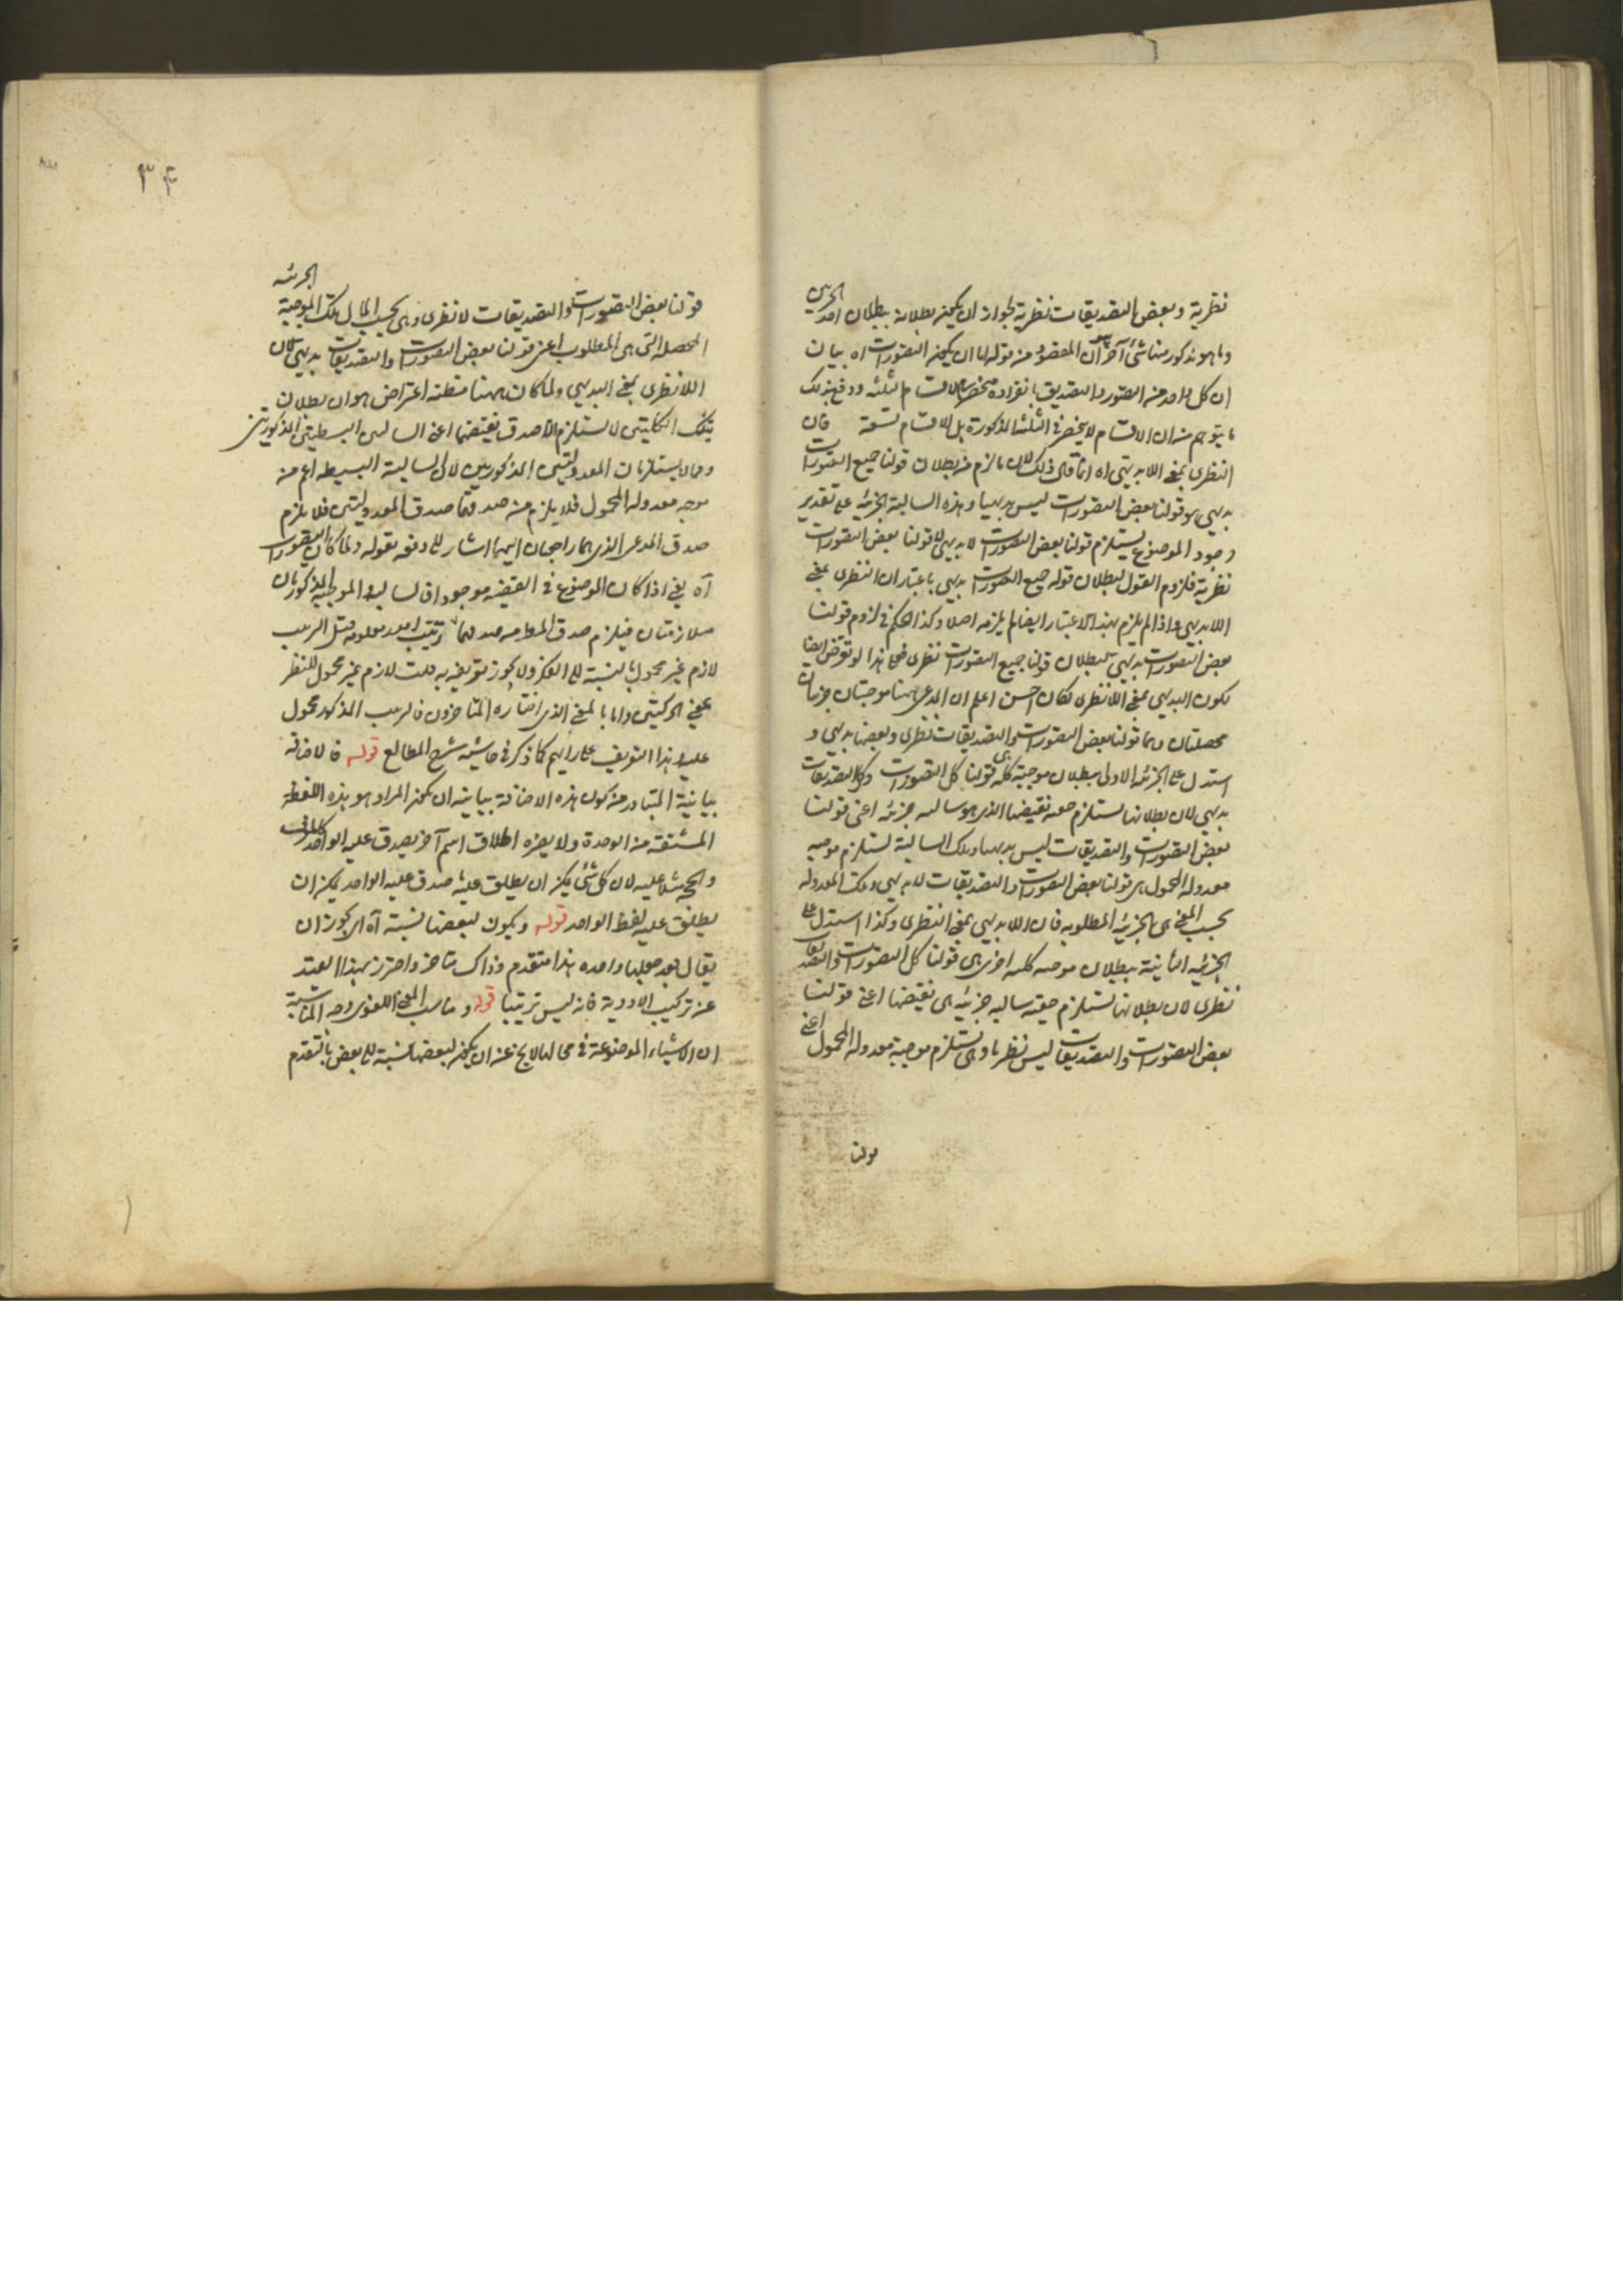 نظرية وبعض التصديقات نظرية لجواز ان يكون بطلانه ببطلان احد الجزئين
وما هو مذكور هنا شئ آخر هو ان المقصود من قوله اما ان يكون التصورات اه بيان
ان كل واحد من التصور والتصديق بانفراده منحصر الاقسام ثلثه ودفع بذلك
ما يتوهم من ان الاقسام لا ينحصر في الثلثه المذكورة بل الاقسام تسعة فان
النظرى بمعنى اللا بديهى اه انما قال ذلك لان ما لزم من بطلان قولنا جميع التصورات
بديهى هو قولنا بعض التصورات ليس بديهيا وهذه السالبة الجزئيه على تقدير
وجود الموضوع يستلزم قولنا بعض التصورات لا بديهى لا قولنا بعض التصورات
نظرية فلزوم القول لبطلان قوله جميع التصورات بديهى باعتبار ان النظرى بمعنى
اللا بديهى واذا لم يلزم بهذا الاعتبار ايضا لم يلزمه اصلا وكذا الحكم في لزوم قولنا
بعض التصورات بديهى لبطلان قولنا جميع التصورات نظرى فعلى هذا لو تعرض ايضا
لكون البديهى بمعنى اللا نظرى لكان احسن اعلم ان المدعى ههنا موجبتان جزئيتان
محصلتان وهما قولنا بعض التصورات والتصديقات نظرى وبعضها بديهى و
استدل على الجزئيه الاولى ببطلان موجبة كليه هى قولنا كل التصورات وكل التصديقات
بديهى لان بطلانها يستلزم صدق نقيضها الذى هو سالبه جزئيه اعنى قولنا
بعض التصورات والتصديقات ليس بديهيا وتلك السالبة تستلزم موجبه
معدولة المحمول هى قولنا بعض التصورات والتصديقات لا بديهى وتلك المعدوله
بحسب المعنى هى الجزئيه المطلوبه فان اللا بديهى بمعنى النظرى وكذا استدل على
الجزئيه الثانية ببطلان موجبه كليه اخرى هى قولنا كل التصورات والتصديقات
نظرى لان بطلانها تستلزم حقية سالبه جزئيه هى نقيضها اعنى قولنا
بعض التصورات والتصديقات ليس نظريا وهى تستلزم موجبة معدولة المحمول اعنى
قولنا
٣٤
قولنا بعض التصورات والتصديقات لا نظرى وهى بحسب المآل تلك الموجبة الجزئيه
المحصله التى هى المطلوب اعنى قولنا بعض التصورات والتصديقات بديهى لان
اللا نظرى بمعنى البديهى ولما كان ههنا مظنه اعتراض هو ان بطلان
تينك الكليتين لا يستلزم الا صدق نقيضهما اعنى السالبتين البسيطتين المذكورتين
وهما لا يستلزمان المعدولتين المذكورتين لان السالبة البسيطه اعم من
موجبه معدوله المحمول فلا يلزم من صدقهما صدق المعدولتين فلا يلزم
صدق المدعى الذى هما راجعان اليهما اشار الى دفعه بقوله ولما كان التصورات
آه يعنى اذا كان الموضوع في القضيه موجودا فالسالبة والموجبة المذكورتان
متلازمتان فيلزم صدق المدعى من صدقهما ترتيب امور معلومه قيل الترتيب
لازم غير محمول بالنسبة الى الفكر ولا يجوز تعريفه به قلت لازم غير محمول للنظر
بمعنى الحركتين واما بالمعنى الذى اختاره المتاخرون فالترتيب المذكور محمول
عليه وهذا التعريف على رايهم كما ذكر في حاشيه شرح المطالع قوله فالاضافه
بيانية المتبادر من كون هذه الاضافة بيانيه ان يكون المراد هو هذه اللفظه
المشتقة من الوحدة ولا يضره اطلاق اسم آخر يصدق عليه الواحد
والحجه مثلا عليه لان كل شئ يمكن ان يطلق عليه صدق عليه الواحد يمكن ان
يطلق عليه لفظ الواحد قوله ويكون لبعضها نسبة آه اى يجوز ان
يقال بعد جعلها واحده هذا متقدم وذاك متاخر واحترز بهذا القيد
عن تركيب الادوية فانه ليس ترتيبا قوله ومناسب المعنى اللغوى وجه المناسبة
ان الاشياء الموضوعة في محالها لا يخ عن ان يكون لبعضها نسبة الى بعض بالتقدم